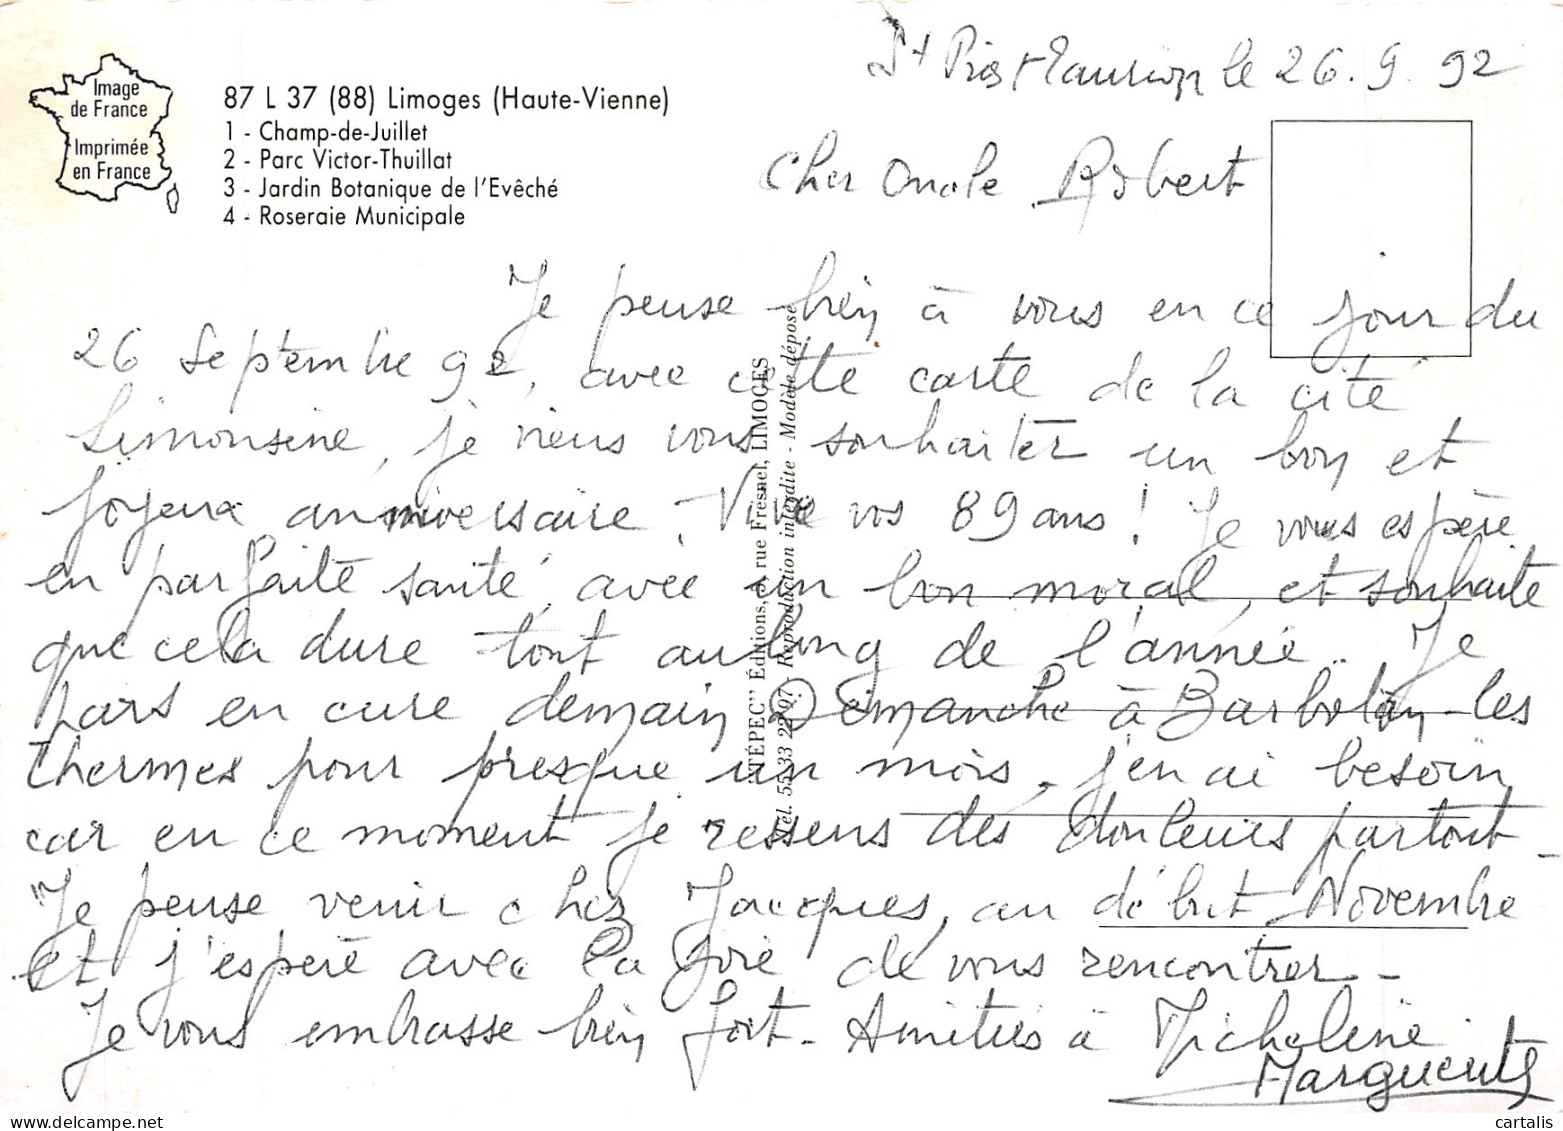 St Priest Taurion le 26.9.92
Image
de France
Imprimée
en France
87 L 37 (88) Limoges (Haute-Vienne)
1 - Champ-de-Juillet
2 - Parc Victor-Thuillat
3 - Jardin Botanique de l'Evêché
4 - Roseraie Municipale
Cher Oncle Robert
Je pense bien à vous en ce jour du
26 Septembre 92, avec cette carte de la cité
Limousine, je viens vous souhaiter un bon et
joyeux anniversaire. Vive vos 89 ans ! Je vous espère
en parfaite santé, avec un bon moral, et souhaite
que cela dure tout au long de l'année. Je
pars en cure demain Dimanche à Barbotan-les
thermes pour presque un mois, j'en ai besoin
car en ce moment je ressens des douleurs partout -
Je pense venir chez Jacques, au début Novembre
et j'espère avoir la joie de vous rencontrer -
Je vous embrasse bien fort - Amitiés à Micheline.
Marguerite
"TÉPEC" Éditions, rue Fresnel, LIMOGES
Tél. 55 33 22 97 Reproduction interdite - Modèle déposé
www.delcampe.net
cartalis